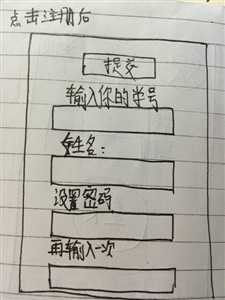 点击注册后
提交
输入你的学号
姓名：
设置密码
再输入一次